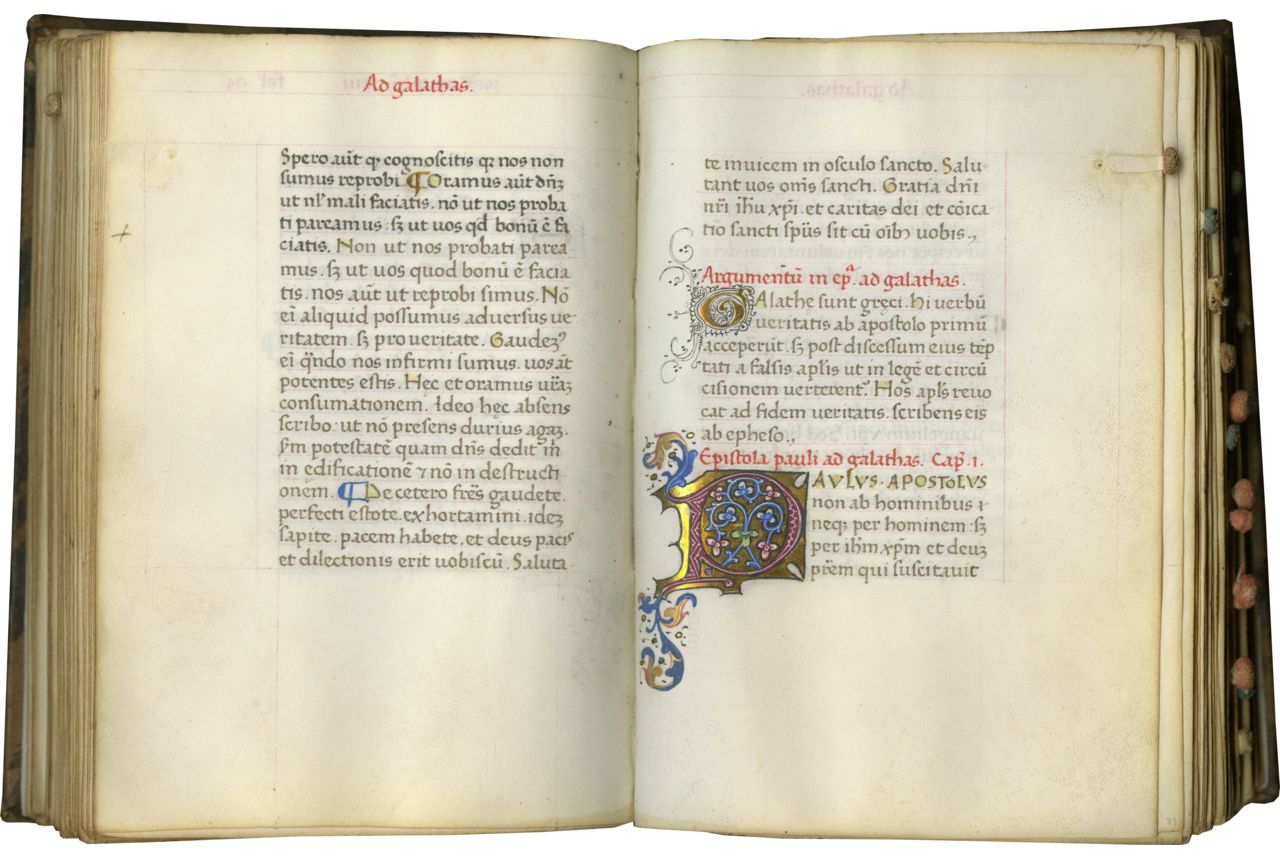 Ad galathas.
Spero aūt qꝫ cognoscitis qꝛ nos non
sumus reprobi. ¶ Oramus aūt dn̄ꝫ
ut nl̓ mali faciatis. nō ut nos proba
ti pareamus. sꝫ ut uos qd̄ bonū ē fa
ciatis. Non ut nos probati parea
mus. sꝫ ut uos quod bonū ē facia
tis. nos aūt ut reprobi simus. Nō
eī aliquid possumus aduersus ue-
ritatem. sꝫ pro ueritate. Gaudeꝫ᾽
eī qn̄do nos infirmi sumus. uos aūt
potentes estis. Hęc et oramus ur̄aꝫ
consumationem. Ideo hęc absens
scribo. ut nō presens durius agaꝫ.
sm̄ potestatē quam dn̄s dedit m̄
in edificationē ⁊ nō in destructi
onēm. ¶ De cetero fr̄es gaudete.
perfecti estote. exhortamini. ideꝫ
sapite. pacem habete. et deus pacis
et dilectionis erit uobiscū. Saluta
te inuicem in osculo sancto. Salu-
tant uos om̄s sancti. Gratia dn̄i
nr̄i ih̄u xp̄i. et caritas dei et cōica
tio sancti sp̄us sit cū oīb uobis.,
Argumentū in ep̄ᵃ. ad galathas.
GAlathe sunt gręci. hi uerbū
ueritatis ab apostolo primū
acceperūt. sꝫ post discessum eius tēp
tati a falsis apl̄is ut in legē et circū
cisionem uerterent᾽. Hos apl̄s reuo
cat ad fidem ueritatis. scribens eis
ab epheso.,
Epistola pauli ad galathas. Cap̄. 1.
PAVLVS APOSTOLVS
non ab hominibus ı
neqꝫ per hominem. sꝫ
per ih̄m xp̄m et deuꝫ
pr̄em qui suscitauit